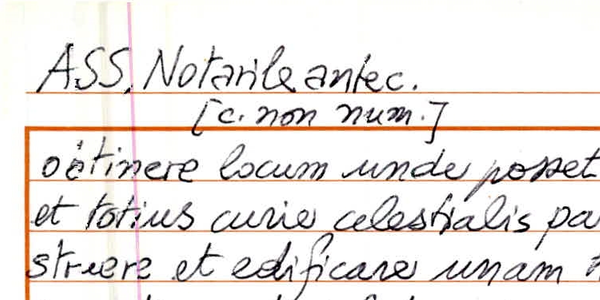 ASS, Notarile antec.
[c. non num.]
obtinere locum unde posset
et totius curie celestialis pa
struere et edificare unam